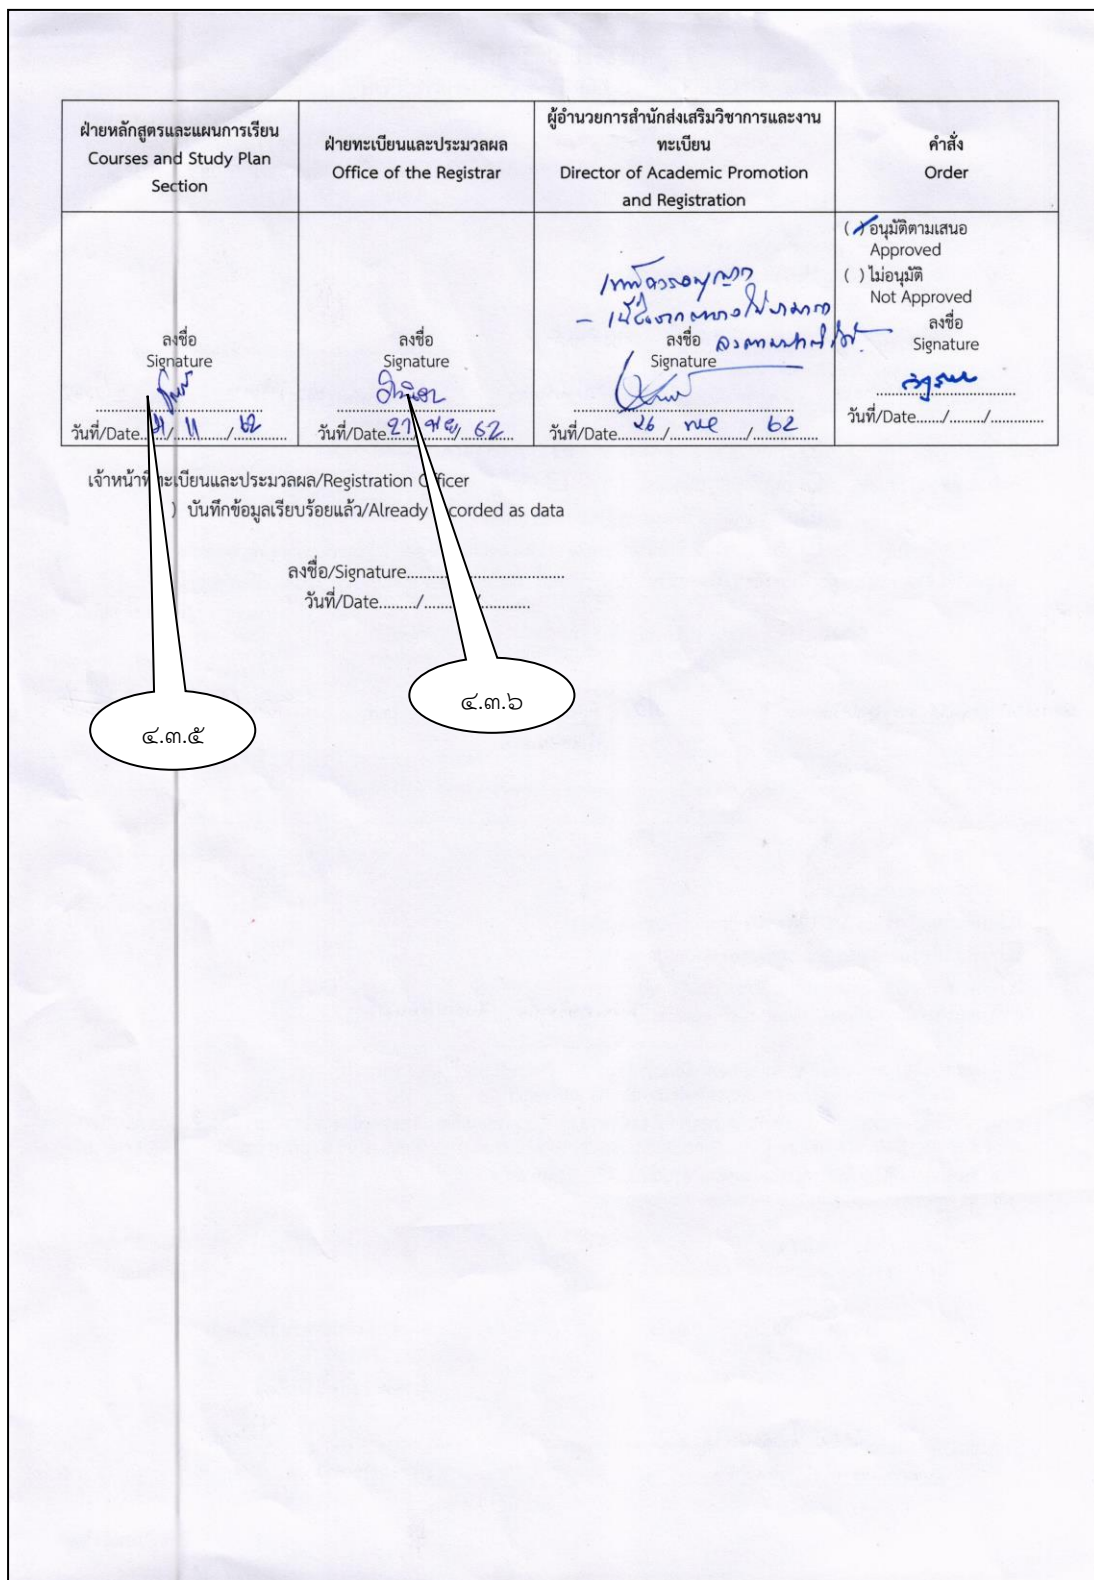 ฝ่ายหลักสูตรและแผนการเรียน
Courses and Study Plan
Section
ฝ่ายทะเบียนและประมวลผล
Office of the Registrar
ผู้อำนวยการสำนักส่งเสริมวิชาการและงาน
ทะเบียน
Director of Academic Promotion
and Registration
คำสั่ง
Order
ลงชื่อ
Signature
วันที่/Date...../ 11 / 62
ลงชื่อ
Signature
วันที่/Date 27 / พย / 62
เห็นควรอนุญาต
- เนื่องจาก
ลงชื่อ
Signature
วันที่/Date 26 / พย / 62
( / ) อนุมัติตามเสนอ
Approved
( ) ไม่อนุมัติ
Not Approved
ลงชื่อ
Signature
วันที่/Date......./......../.............
เจ้าหน้าที่ทะเบียนและประมวลผล/Registration Officer
) บันทึกข้อมูลเรียบร้อยแล้ว/Already corded as data
ลงชื่อ/Signature......................................
วันที่/Date........./............/............
๔.๓.๕
๔.๓.๖